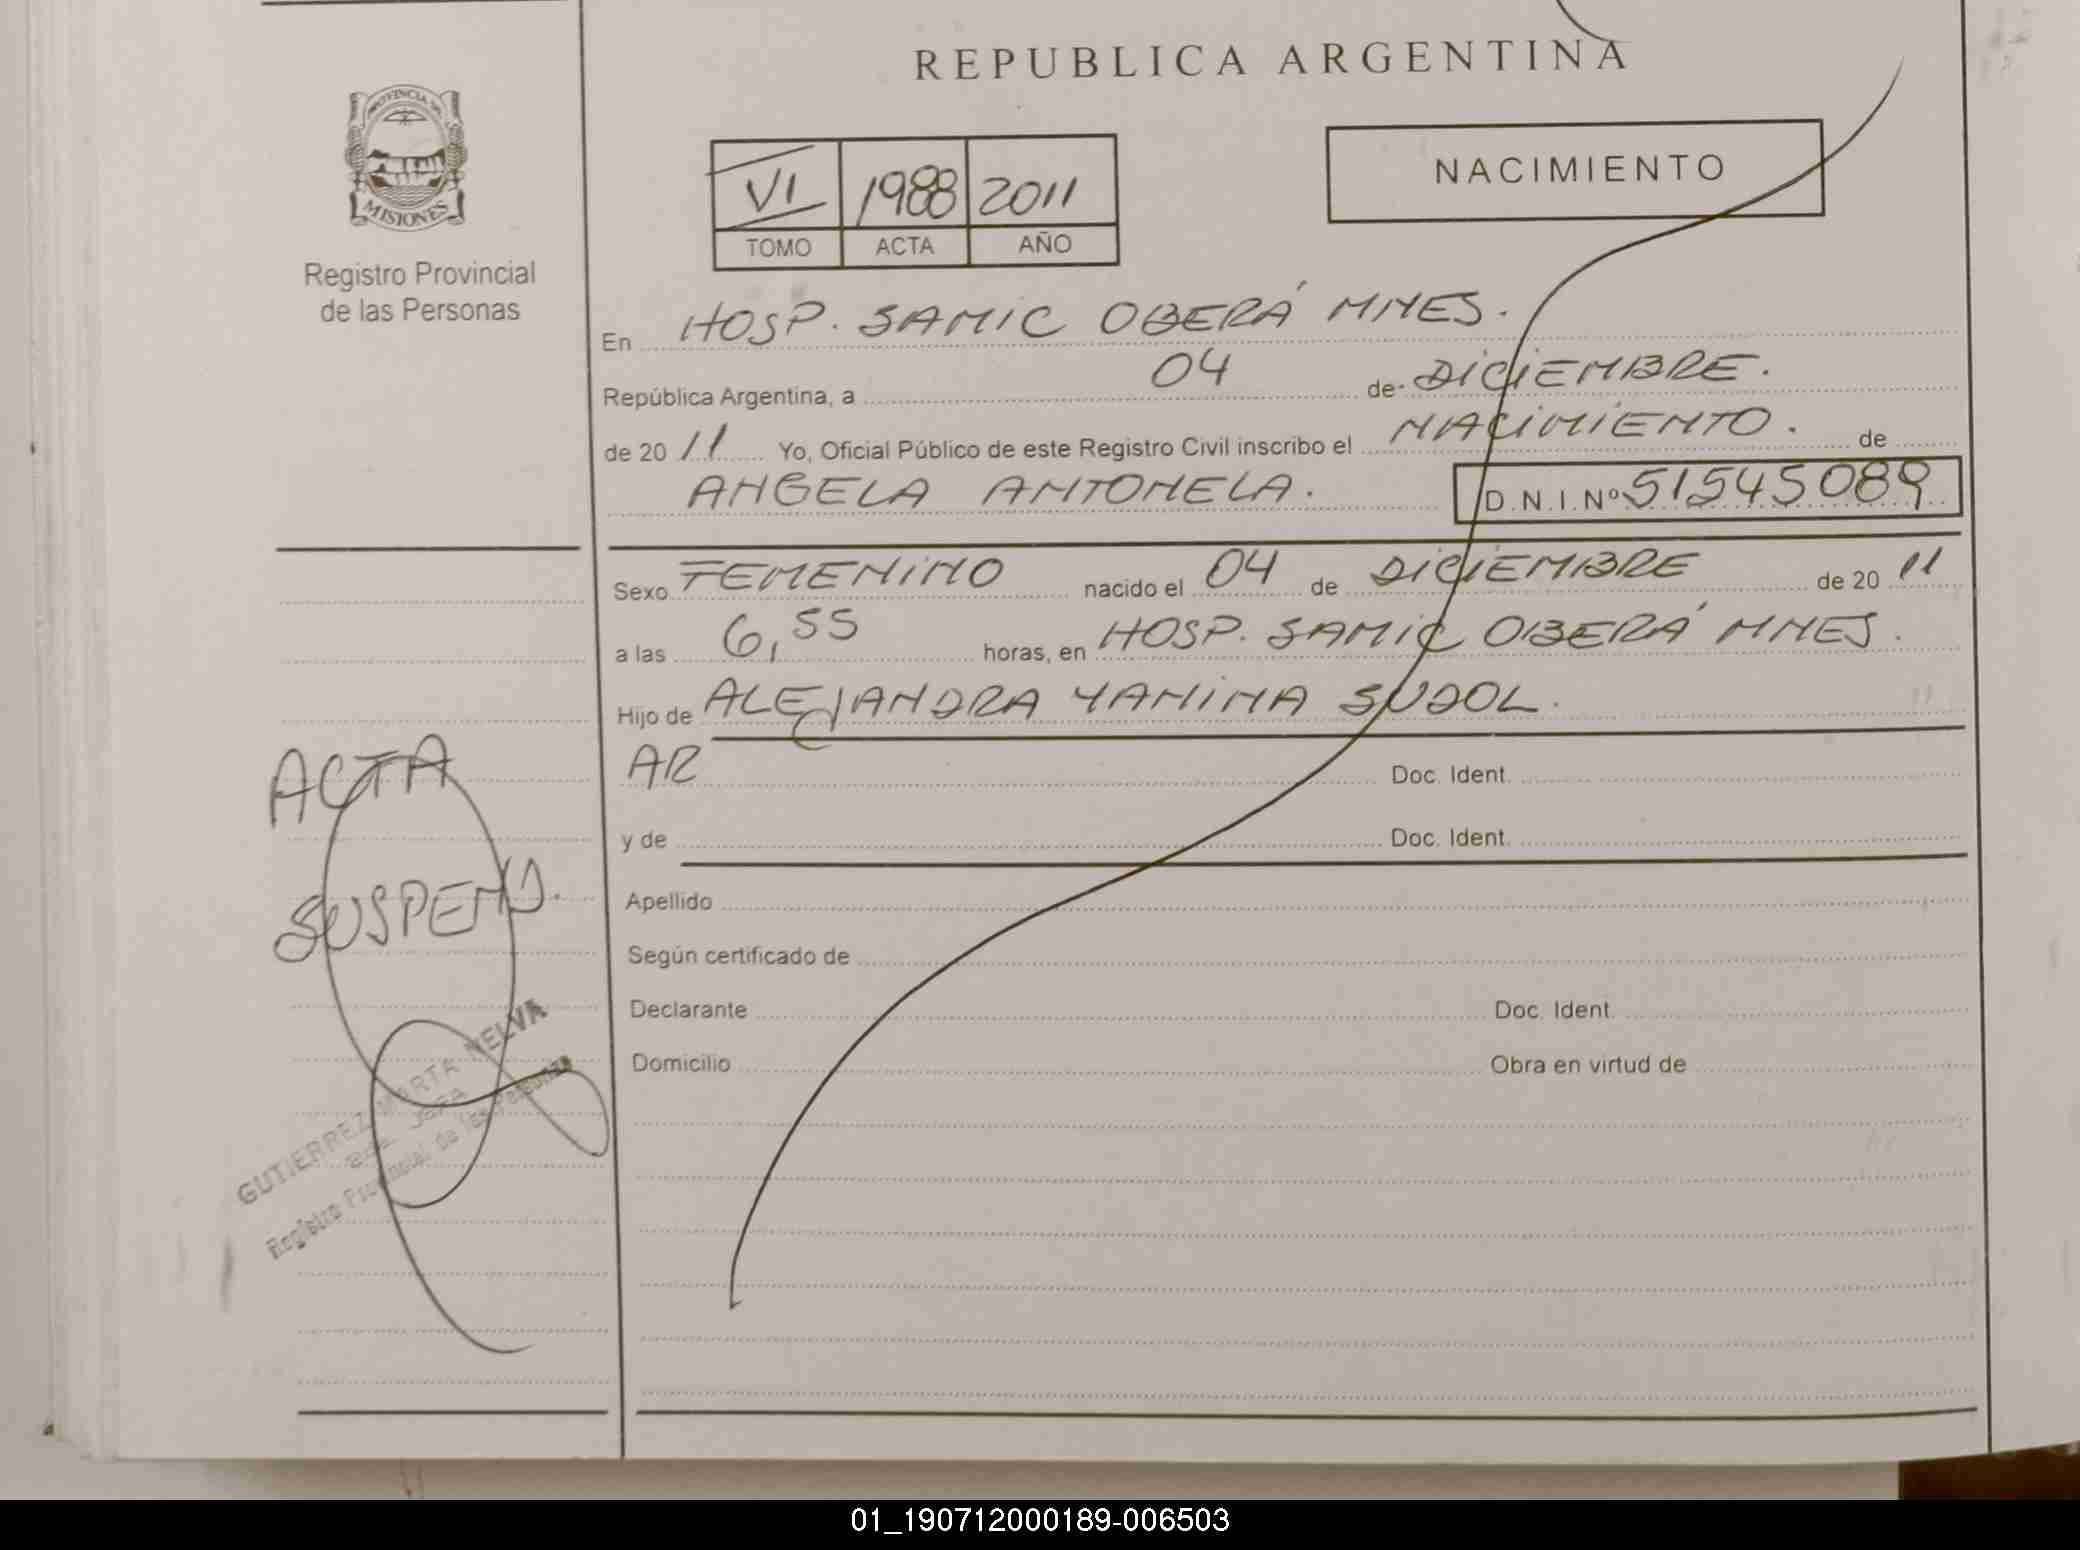 REPUBLICA ARGENTINA
PROVINCIA DE
MISIONES
Registro Provincial
de las Personas
VI 1988 2011
TOMO ACTA AÑO
NACIMIENTO
En HOSP. SAMIC OBERÁ MNES.
República Argentina, a 04 de DICIEMBRE.
de 20 11 Yo, Oficial Público de este Registro Civil inscribo el NACIMIENTO. de
ANGELA ANTONELA. D.N.I.Nº 51545089
Sexo FEMENINO nacido el 04 de DICIEMBRE de 20 11
a las 6,55 horas, en HOSP. SAMIC OBERÁ MNES.
Hijo de ALEJANDRA YANINA SUDOL.
AR Doc. Ident.
y de Doc. Ident.
Apellido
Según certificado de
Declarante Doc. Ident.
Domicilio Obra en virtud de
ACTA
SUSPEND.
GUTIERREZ MARTA MELVA
JEFA
Registro Provincial de las Personas
01_190712000189-006503